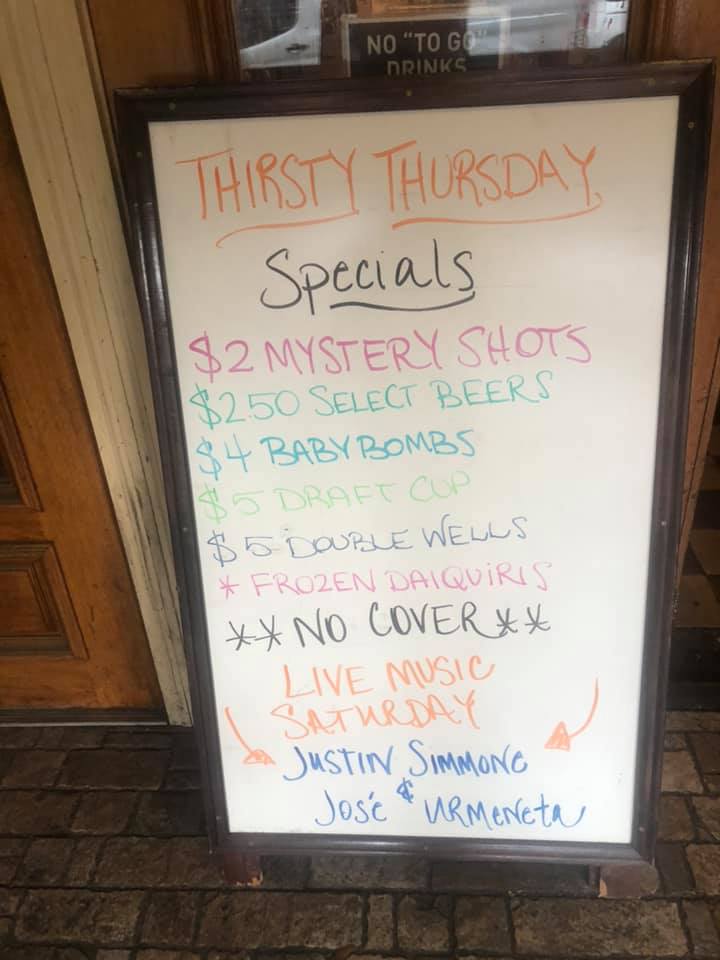 NO "TO GO"
DRINKS
THIRSTY THURSDAY
Specials
$2 MYSTERY SHOTS
$2.50 SELECT BEERS
$4 BABY BOMBS
$5 DRAFT CUP
$5 DOUBLE WELLS
* FROZEN DAIQUIRIS
** NO COVER **
LIVE MUSIC
SATURDAY
JUSTIN SIMMONC
&
José URMeNeta